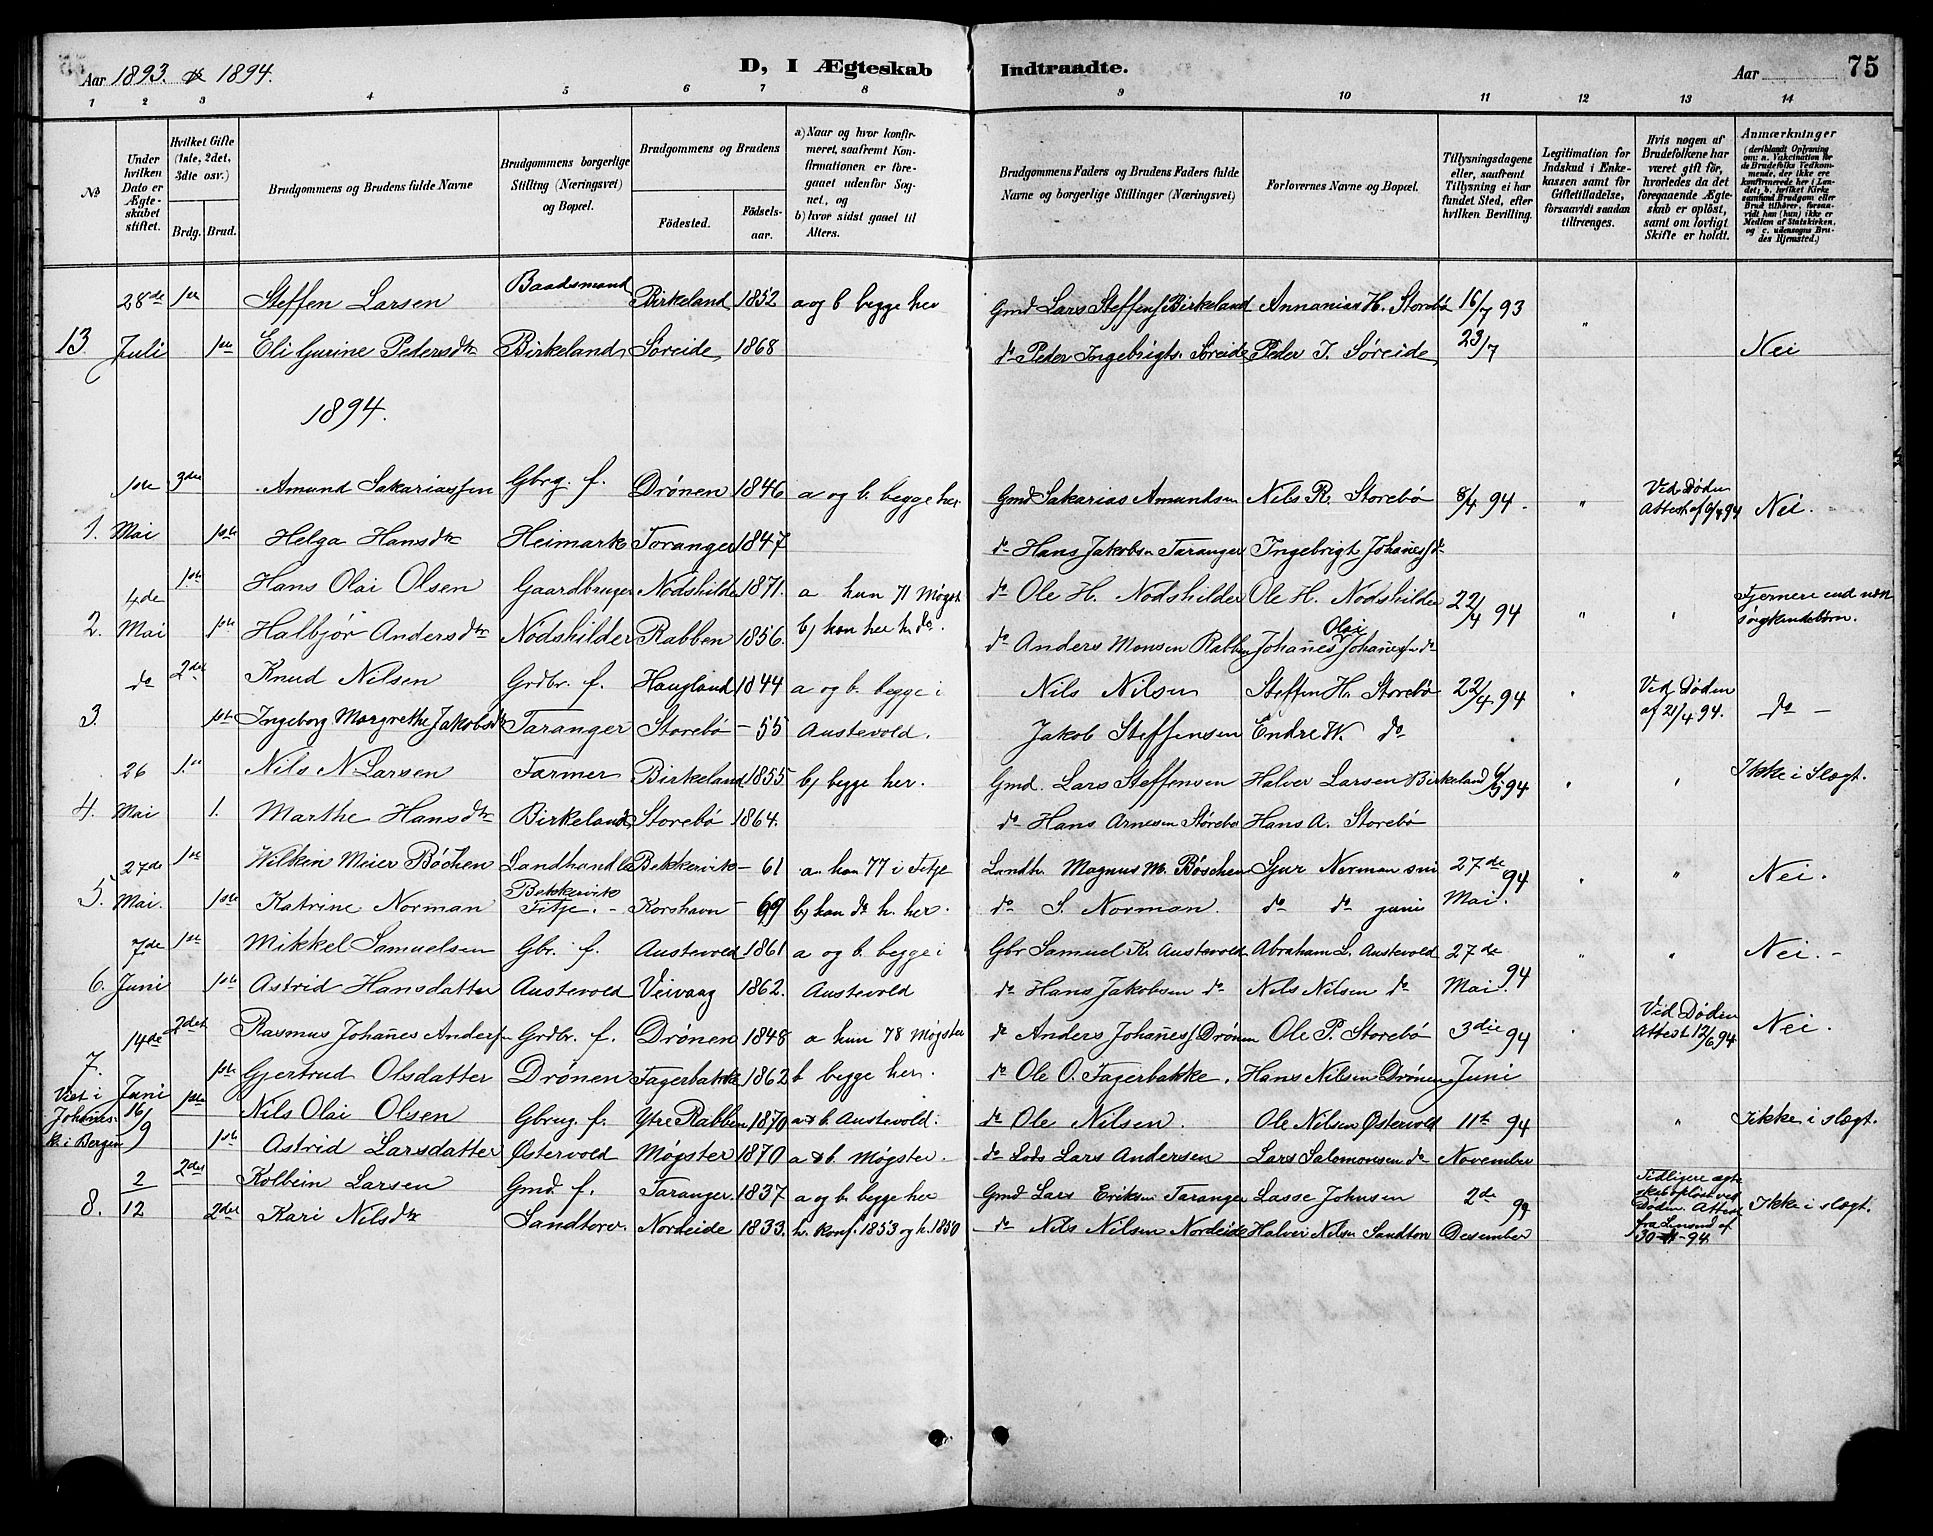 Aar 1893. & 1894.
D, I Ægteskab Indtraadte.
Aar 75
1 2 3 4 5 6 7 8 9 10 11 12 13 14
No
Under hvilken Dato er Ægteskabet stiftet.
Hvilket Gifte (1ste, 2det, 3die osv.)
Brdg. Brud.
Brudgommens og Brudens fulde Navne
Brudgommens borgerlige Stilling (Næringsvei) og Bopæl.
Brudgommens og Brudens
Födested. Födselsaar.
a) Naar og hvor konfirmeret, saafremt Konfirmationen er foregaaet udenfor Sognet, og
b) hvor sidst gaaet til Alters.
Brudgommens Faders og Brudens Faders fulde Navne og borgerlige Stillinger (Næringsvei)
Forlovernes Navne og Bopæl.
Tillysningsdagene eller, saafremt Tillysning ei har fundet Sted, efter hvilken Bevilling.
Legitimation for Indskud i Enkekassen samt for Giftetilladelse, forsaavidt saadan tiltrænges.
Hvis nogen af Brudefolkene har været gift før, hvorledes da det foregaaende Ægteskab er oplöst, samt om lovligt Skifte er holdt.
Anmærkninger (deriblandt Oplysning om: a. Vakcination for de Brudefolks Vedkommende, der ikke ere konfirmerede her i Landet; b. hvilket Kirkesamfund Brudgom eller Brud tilhörer, forsaavidt han (hun) ikke er Medlem af Statskirken, og c. udensogns Brudes Hjemsted.)
28de 1ste Steffen Larsen Baadsmand Birkeland 1852 a og b begge her Gmd Lars Steffens Birkeland Annanias H. Storebø 16/7 93 "
13. Juli 1ste Eli Gurine Pedersdtr Birkeland Søreide 1868 do Peder Ingebrigts. Søreide Peder I. Søreide 23/7 Nei
1894.
1ste 3die Amund Sakariassen Gbrg. f. Drönen 1846 a og b. begge her Gmd Sakarias Amundsen Nils R. Storebø 8/4 94. " Ved Døden Attest af 6/4 94 Nei.
1. Mai 1ste Helga Hansdtr Heimark Toranger 1847 do Hans Jakobsn Taranger Ingebrigt Johañes do
4de 1ste Hans Olai Olsen Gaardbruger Nodshilder 1871. a hun 71 Møgst. do Ole H. Nodshilder Ole H. Nodshilder 22/4 94 " " Fjernere end næstsøskendebörn.
2. Mai 1ste Halbjör Andersdtr Nodshilder Rabben 1856. b) han her h. do. do Anders Monsen Rabben Johañes Olai Johañessen do
do 2det Knud Nilsen Grdbr. f. Haugland 1844 a og b. begge i Nils Nilsen Steffen H. Storebø 22/4 94 " Ved Døden af 21/4 94. do —
3. 1ste Ingeborg Margrethe Jakobsdtr Taranger Storebø — 55 Austevold. Jakob Steffensen Endre W. do
26 1ste Nils N. Larsen Farmer Birkeland 1855 b) begge her. Gmd. Lars Steffensen Halver Larsen Birkeland 6/5 94 " " Ikke i Slægt.
4. Mai 1. Marthe Hansdtr Birkeland Storebø 1864. do Hans Arnesen Storebø Hans A. Storebø
27de 1ste Wilkin Meier Böschen Landhandler Bekkervik — 61 a. han 77 i Fitje Landh. Magnus M. Böschen Sjur Norman sen 27de 94 " " Nei.
5. Mai. 1ste Katrine Norman Bekkervik Fitje. Korshavn — 69 b) han do h. her. do S. Norman. do do junir Mai.
7de 1ste Mikkel Samuelsen Gbr. f. Austevold 1861 a og b. begge i Gbr Samuel K. Austevold Abraham L. Austevold 27de " " Nei. —
6. Juni 1ste Astrid Hansdatter Austevold Veivaag 1862. Austevold do Hans Jakobsen do Nils Nilsen do Mai. 94
14de 2det Rasmus Johañes Andersen Grdbr. f. Drönen 1848 a hun 78 Møgster do Anders Johañes Drönen Ole P. Storebø 3die 94 " Ved Døden Attest 12/6 94 Nei.
7. Juni 1ste Gjertrud Olsdatter Drönen Fagerbakke 1862 b begge her. do Ole O. Fagerbakke. Hans Nilsen Drönen Juni
Viet i Johañesk. i Bergen 16/9 1ste Nils Olai Olsen Gbrug. f. Ytre Rabben 1870 a & b. Austevold. do Ole Nilsen. Ole Nilsen Østervold 11te 94 " Ikke i slægt.
1ste Astrid Larsdatter Østervold Møgster 1870 a & b. Møgster. do Lods Lars Andersen Lars Salomonsen do November
2/12 2det Kolbein Larsen Gmd. f. Taranger. 1837 a og b. begge her Gmd Lars Eriksen Taranger Lasse Johnsen 2de 94 Tidligere ægteskab opløst ved Døden. Attest fra Lensmd af 30-11-94 Ikke i slægt.
8. 2det Kari Nilsdtr Sandtorv. Nordeide 1833. h. konf. 1853 og h. 1850 do Nils Nilsen Nordeide Halver Nilsen Sandtorv Desember